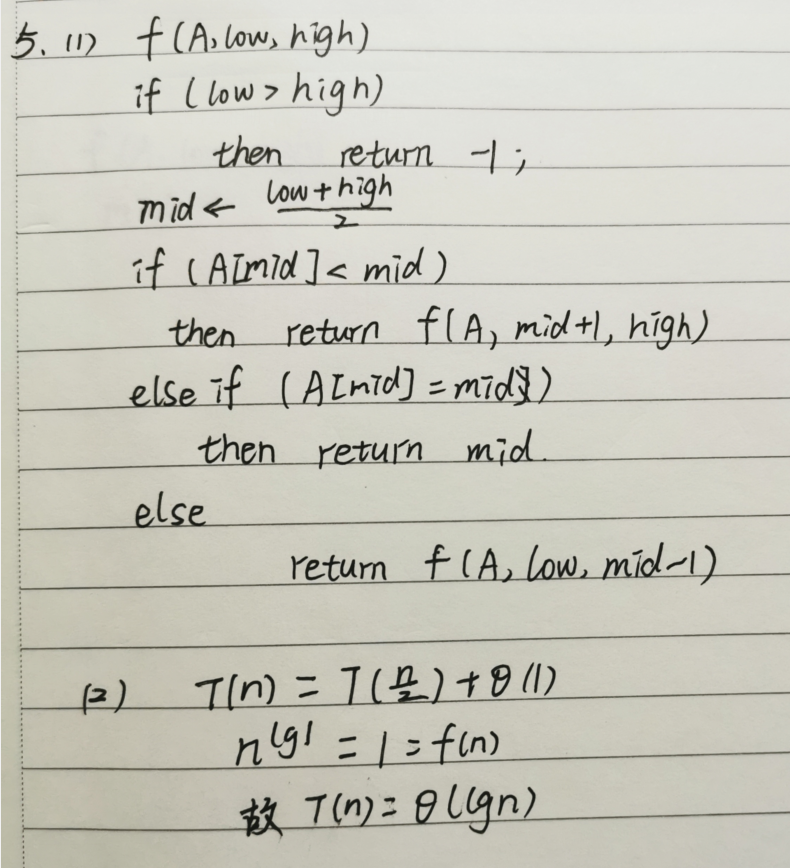 5. (1) f(A, low, high)
if (low > high)
then return -1;
mid ← (low + high)/2
if (A[mid] < mid)
then return f(A, mid+1, high)
else if (A[mid] = mid)
then return mid.
else
return f(A, low, mid-1)
(2) T(n) = T(n/2) + θ(1)
n^lg1 = 1 = f(n)
故 T(n) = θ(lgn)